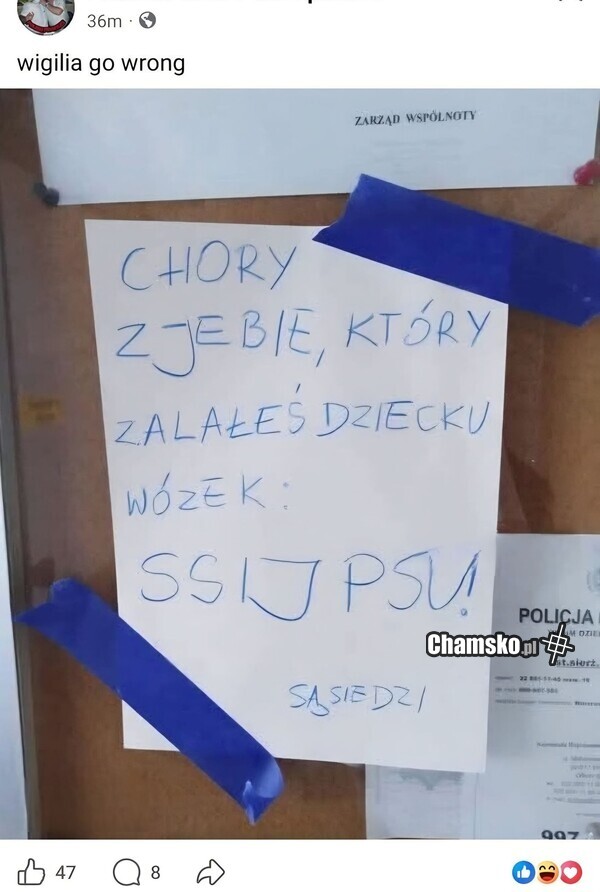 36m
wigilia go wrong
ZARZĄD WSPÓLNOTY
CHORY
ZJEBIE, KTÓRY
ZALAŁEŚ DZIECKU
WÓZEK:
SSIJ PSU!
SĄSIEDZI
POLICJA
Chamsko.pl
st.sierż.
997
47
8